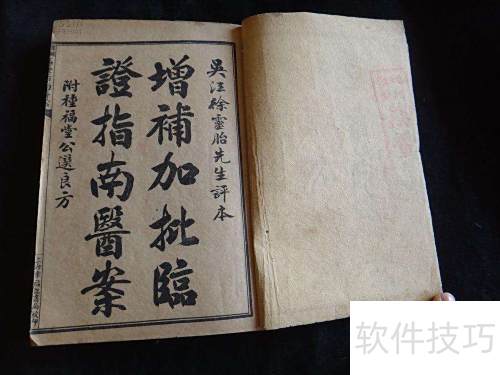 吳江徐靈胎先生評本
增補加批臨
證指南醫案
附種福堂公選良方
软件技巧